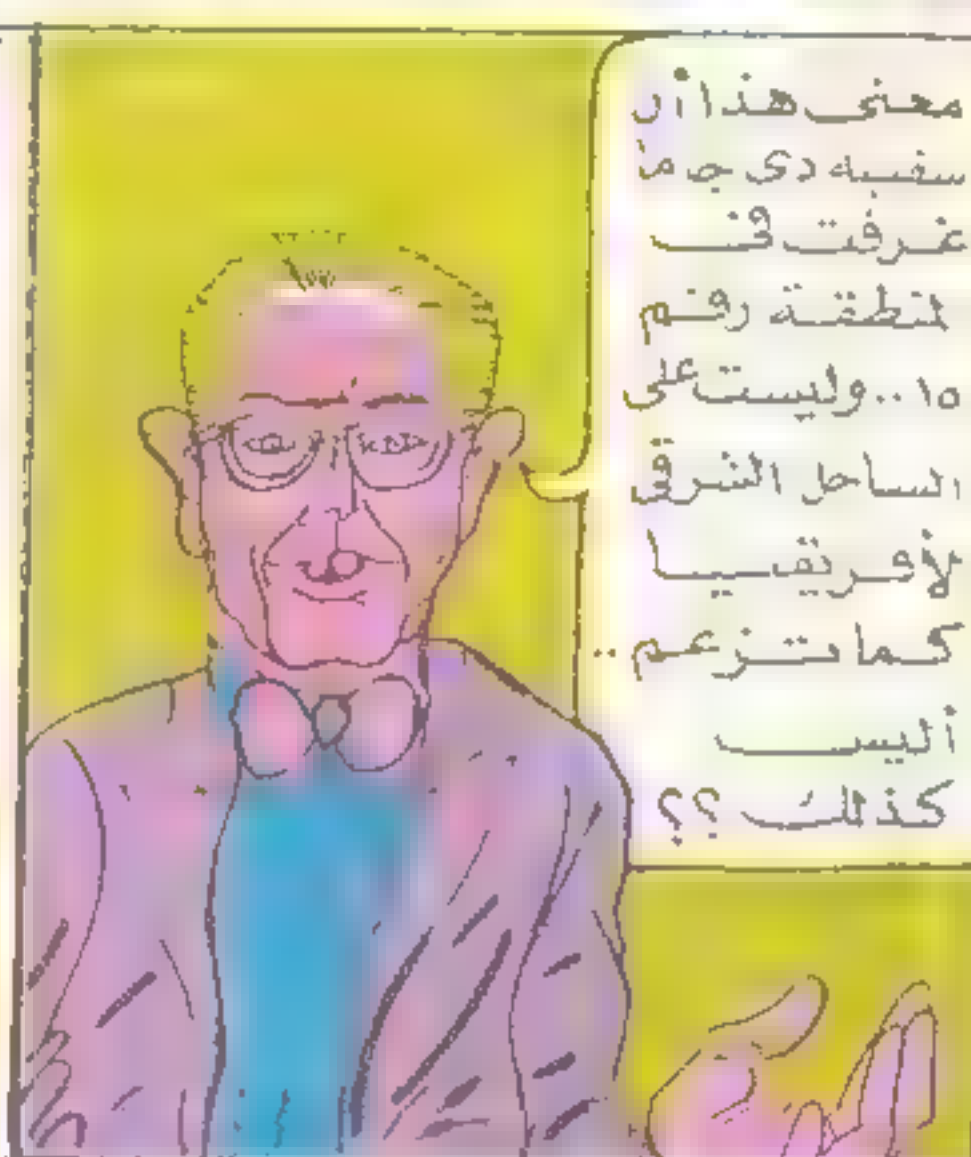 معنى هذا أن
سفينه دى جاما
غرقت فى
المنطقة رقم
١٥.. وليست على
الساحل الشرقى
لأفريقيا
كما تزعم ..
أليس
كذلك ؟؟